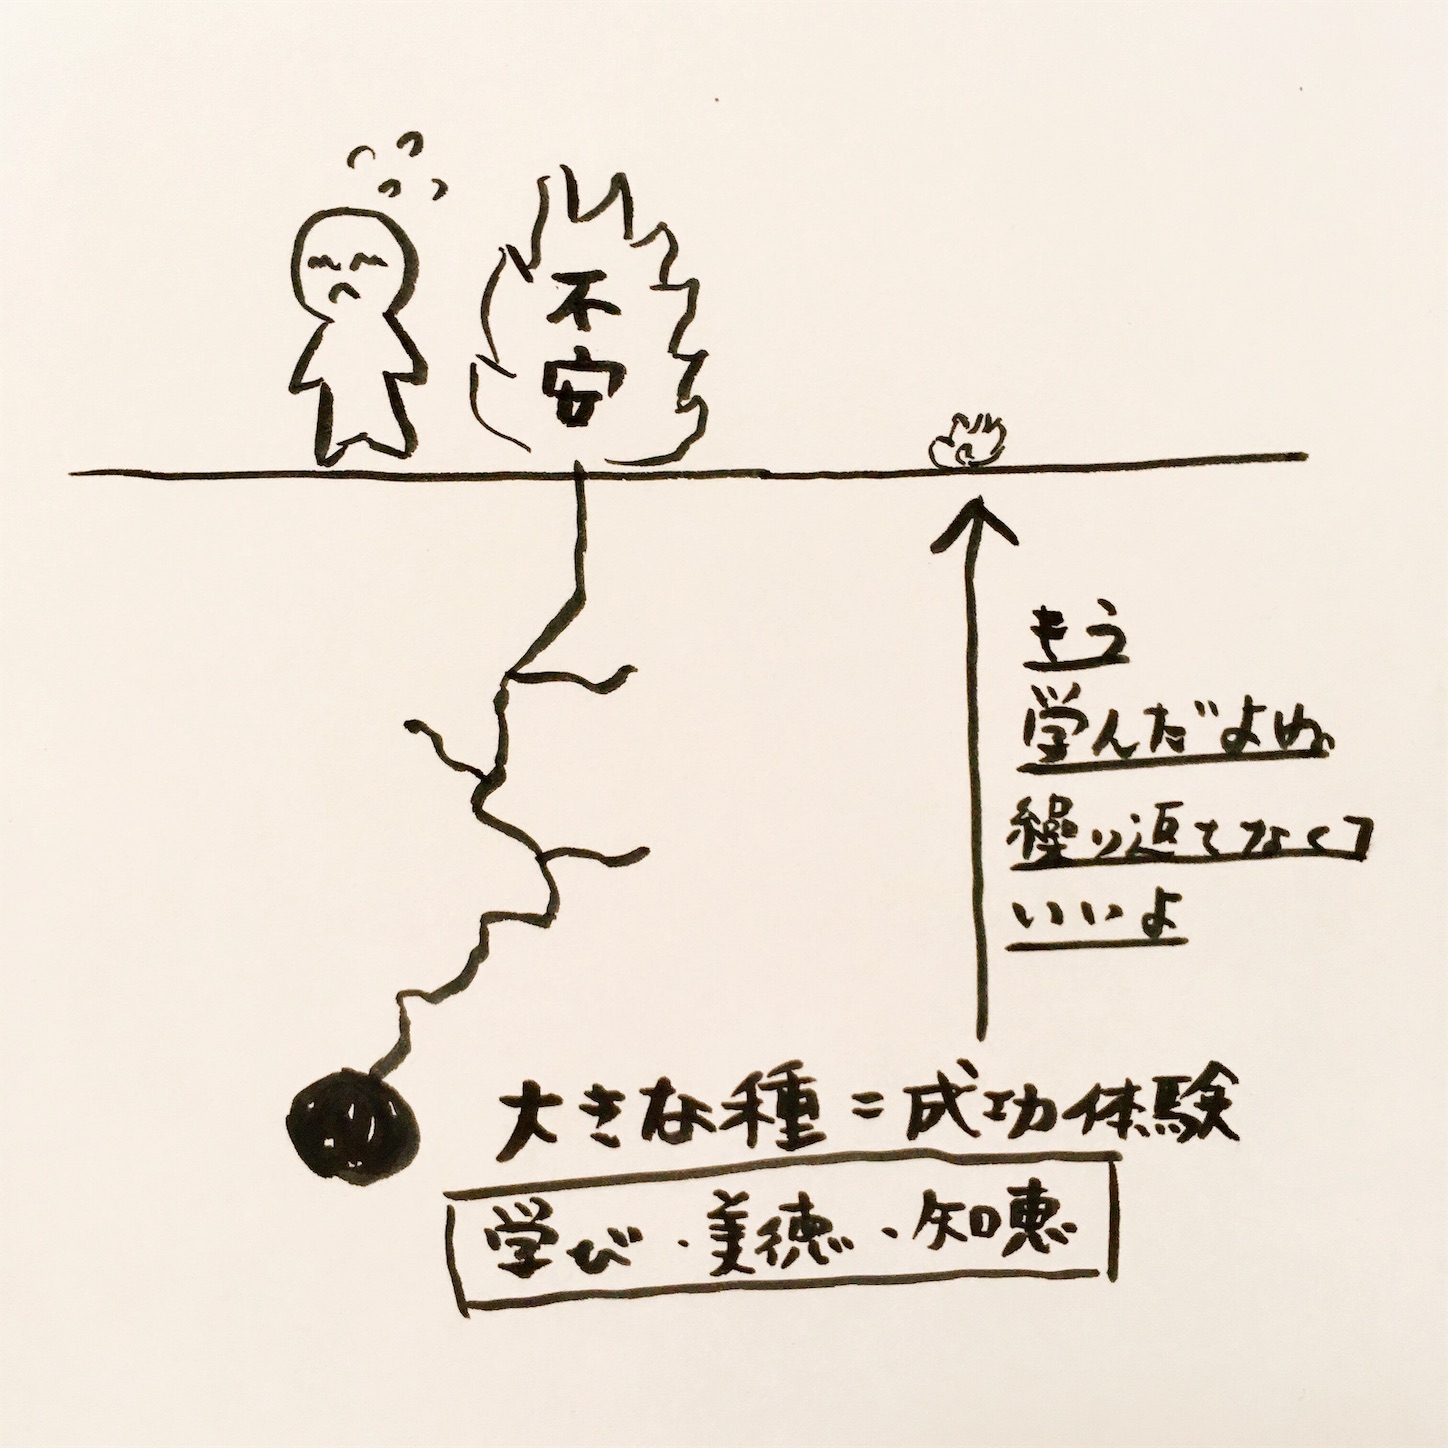 不安
もう
学んだよね
繰り返さなくて
いいよ
大きな種=成功体験
学び・美徳、知恵